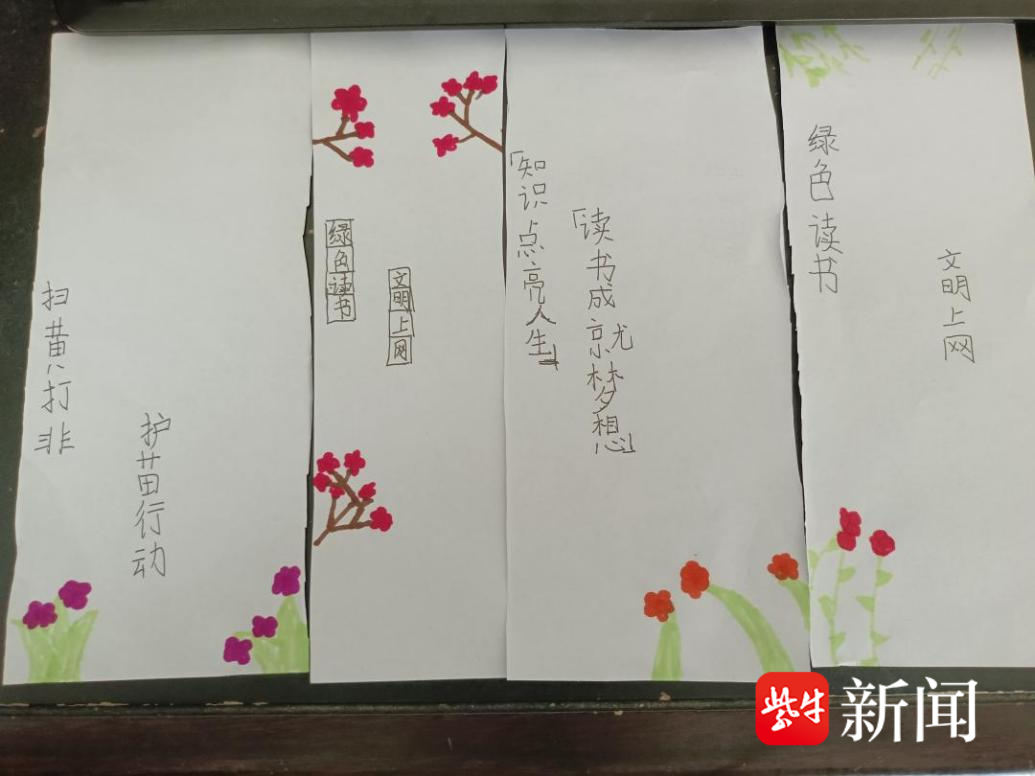 扫黄打非
护苗行动
绿色读书
文明上网
「知识点亮人生」
「读书成就梦想」
绿色读书
文明上网
紫牛新闻